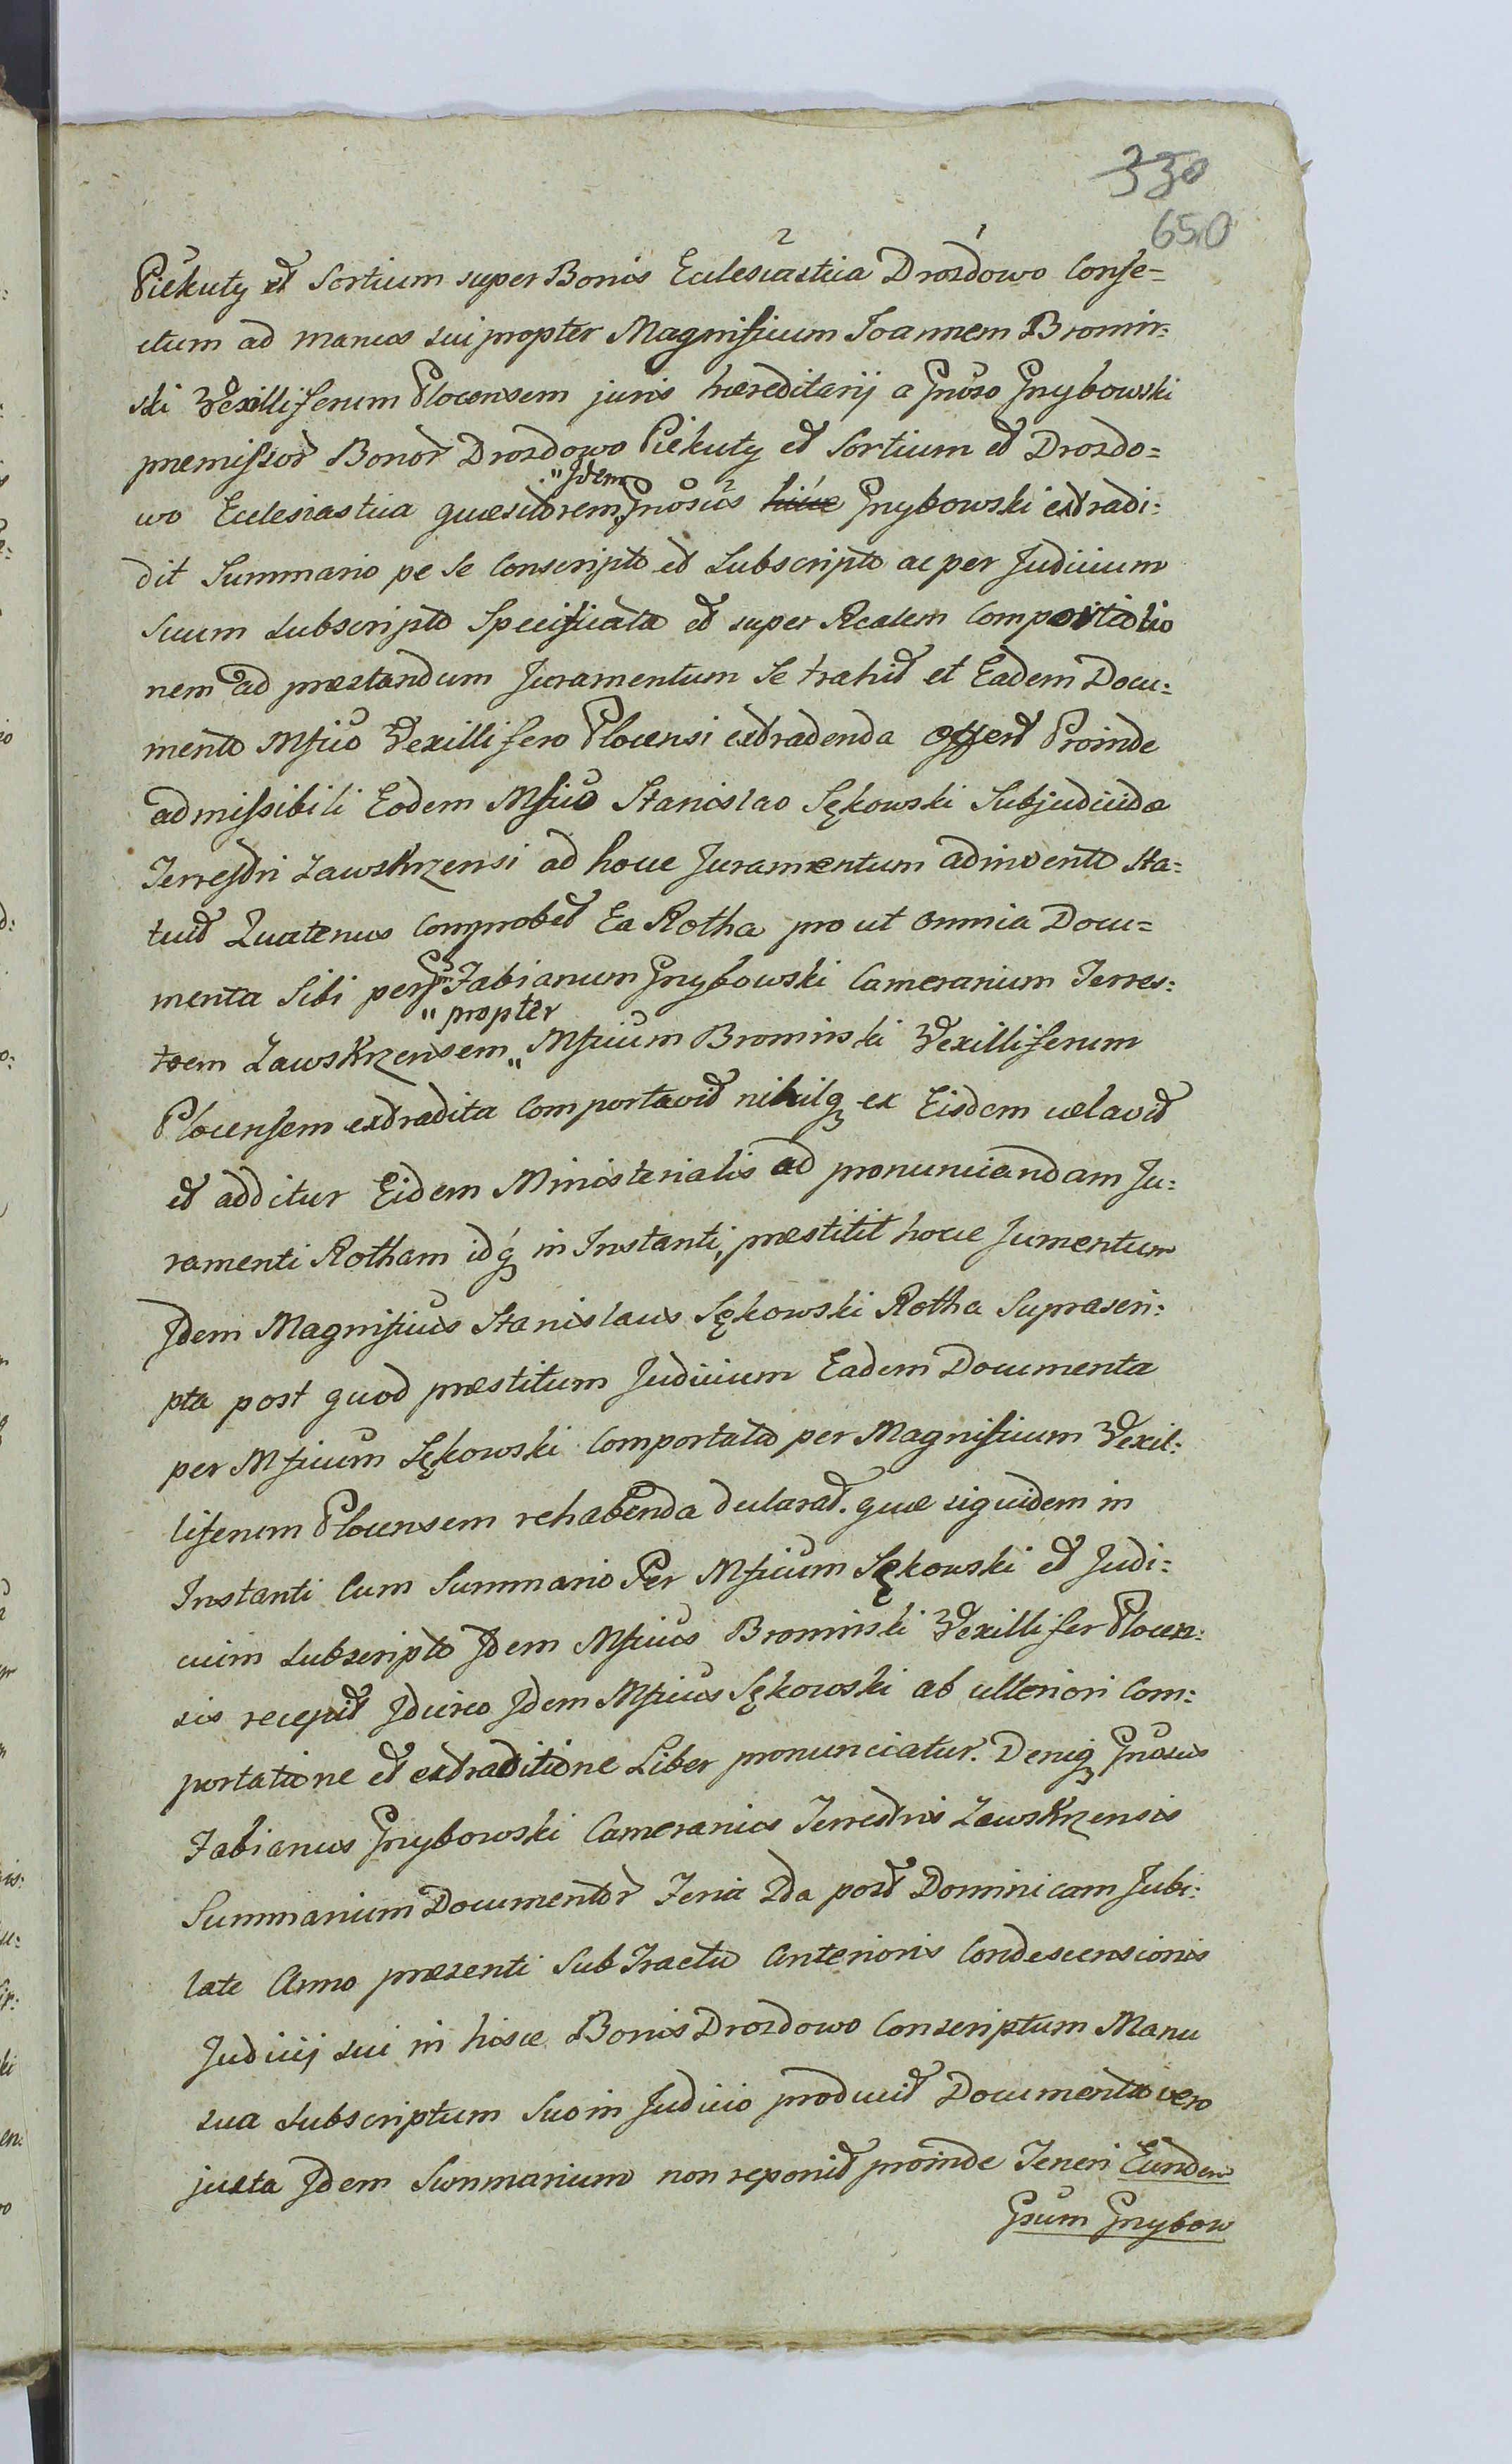 330
650
2 1
Piekuty et Sortium super Bonis Ecclesiastica Drozdowo Confe=
ctum ad manus sui propter Magnificum Joannem Bromir:
ski Vexilliferum Plocensem juris hæreditarij a Gnoso Grzybowski
præmissor Bonor Drozdowo Piekuty et Sortium et Drozdo=
"Idem
wo Ecclesiastica quæsitorem, Gnosus hicce Grzybowski extradi:
dit Summario pe se Conscripto et Subscripto ac per Judicium
Suum Subscripto Specificata et super Realem Comportatio
nem ad præstandum Juramentum Se trahit et Eadem Docu:
menta Mfico Vexillifero Plocensi extradenda offert Proinde
admissibili Eodem Mfico Stanislao Sękowski Subjudicide
Terrestri Zawskrzensi ad hocce Juramentum adinvento Sta:
tuit Quatenus Comprobet Ea Rotha pro ut Omnia Docu=
menta Sibi per Gm Fabianum Grzybowski Camerarium Terres:
" propter
trem Zawskrzensem " Mficum Bromirski Vexilliferum
Plocensem extradita Comportavit nihilq ex Eisdem celavit
et additur Eidem Ministerialis ad pronunciandam Ju:
ramenti Rotham idq in Instanti, præstitit hocce Jumentum
Idem Magnificus Stanislaus Sękowski Rotha Suprascri:
pta post quod præstitum Judicium Eadem Documenta
per Mficum Sękowski Comportata per Magnificum Vexil:
liferum Plocensem rehabenda declarat. quæ siquidem in
Instanti Cum Summario Per Mficum Sękowski et Judi:
cium Subscripto Idem Mficus Bromirski Vexillifer Plocen:
sis recepit Idcirco Idem Mficus Sękowski ab ulteriori Com:
portatione et extraditione Liber pronunciatur. Deniq Gnosus
Fabianus Grzybowski Camerarius Terrestris Zawskrzensis
Summarium Documentor Feria 2da post Dominicam Jubi:
late Anno præsenti Sub Tractu Anterioris Condescensionis
Judicij sui in hisce Bonis Drozdowo Conscriptum Manu
sua Subscriptum Suo in Judicio producit Documenta vero
juxta Idem Summarium non reponit proinde Teneri Eundem
Gsum Grzybow